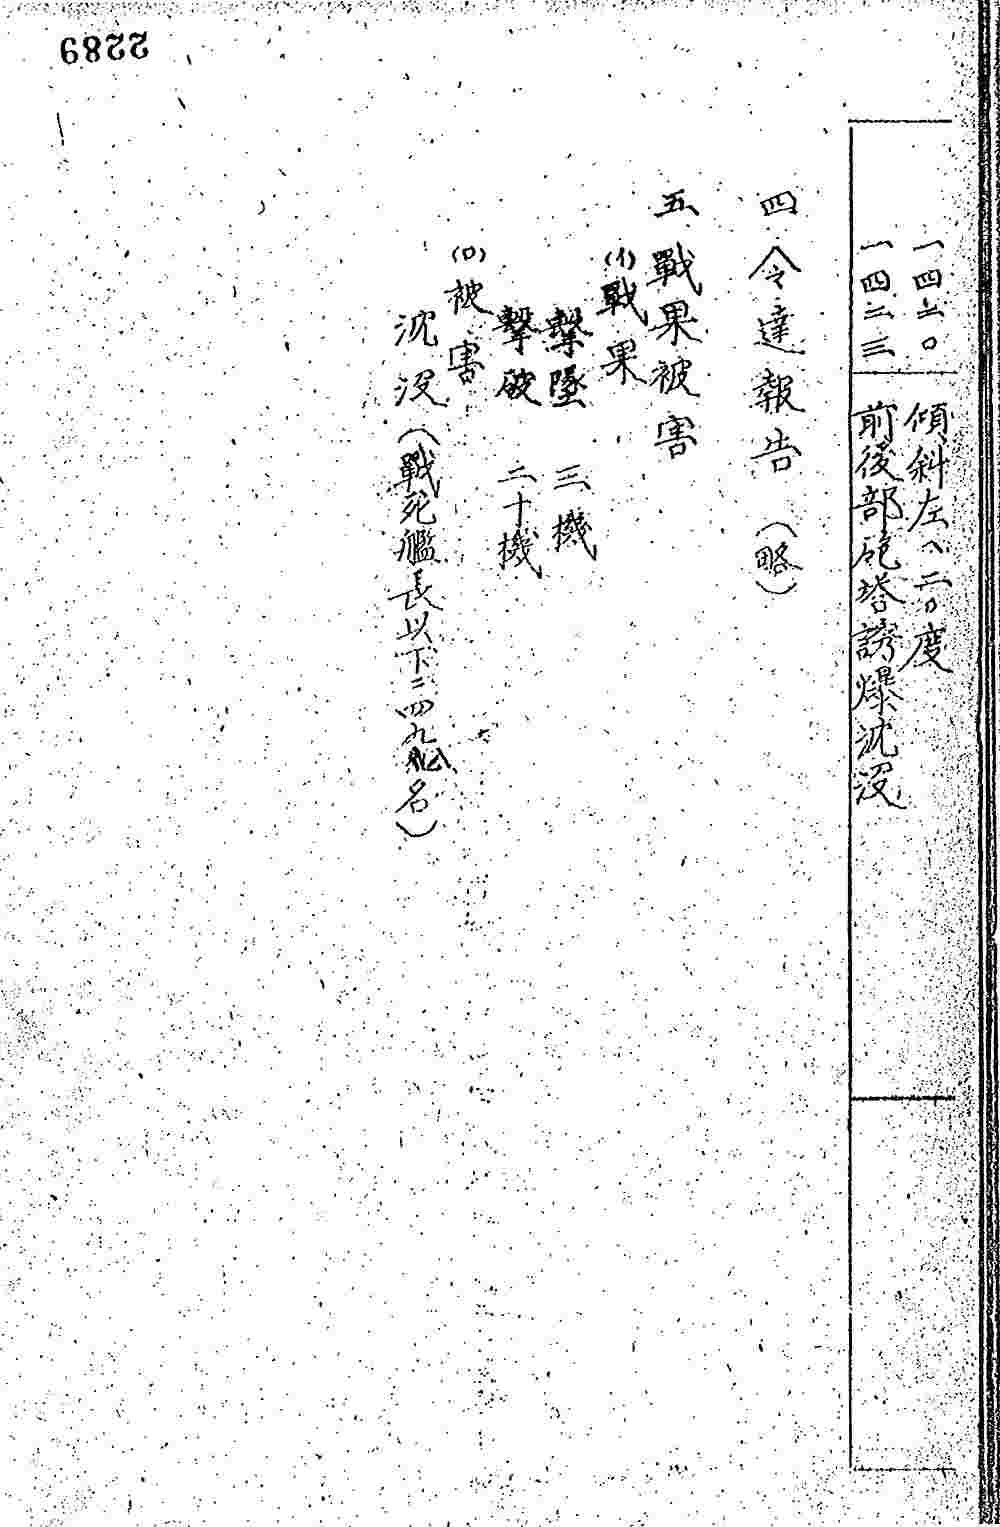 一四二〇 傾斜左へ二〇度
一四二三 前後部砲塔誘爆沈没
四 令達報告 (略)
五、戰果被害
(イ)戰果
擊墜 三機
擊破 二十機
(ロ)被害
沈没(戰死艦長以下二四九八名)
2289